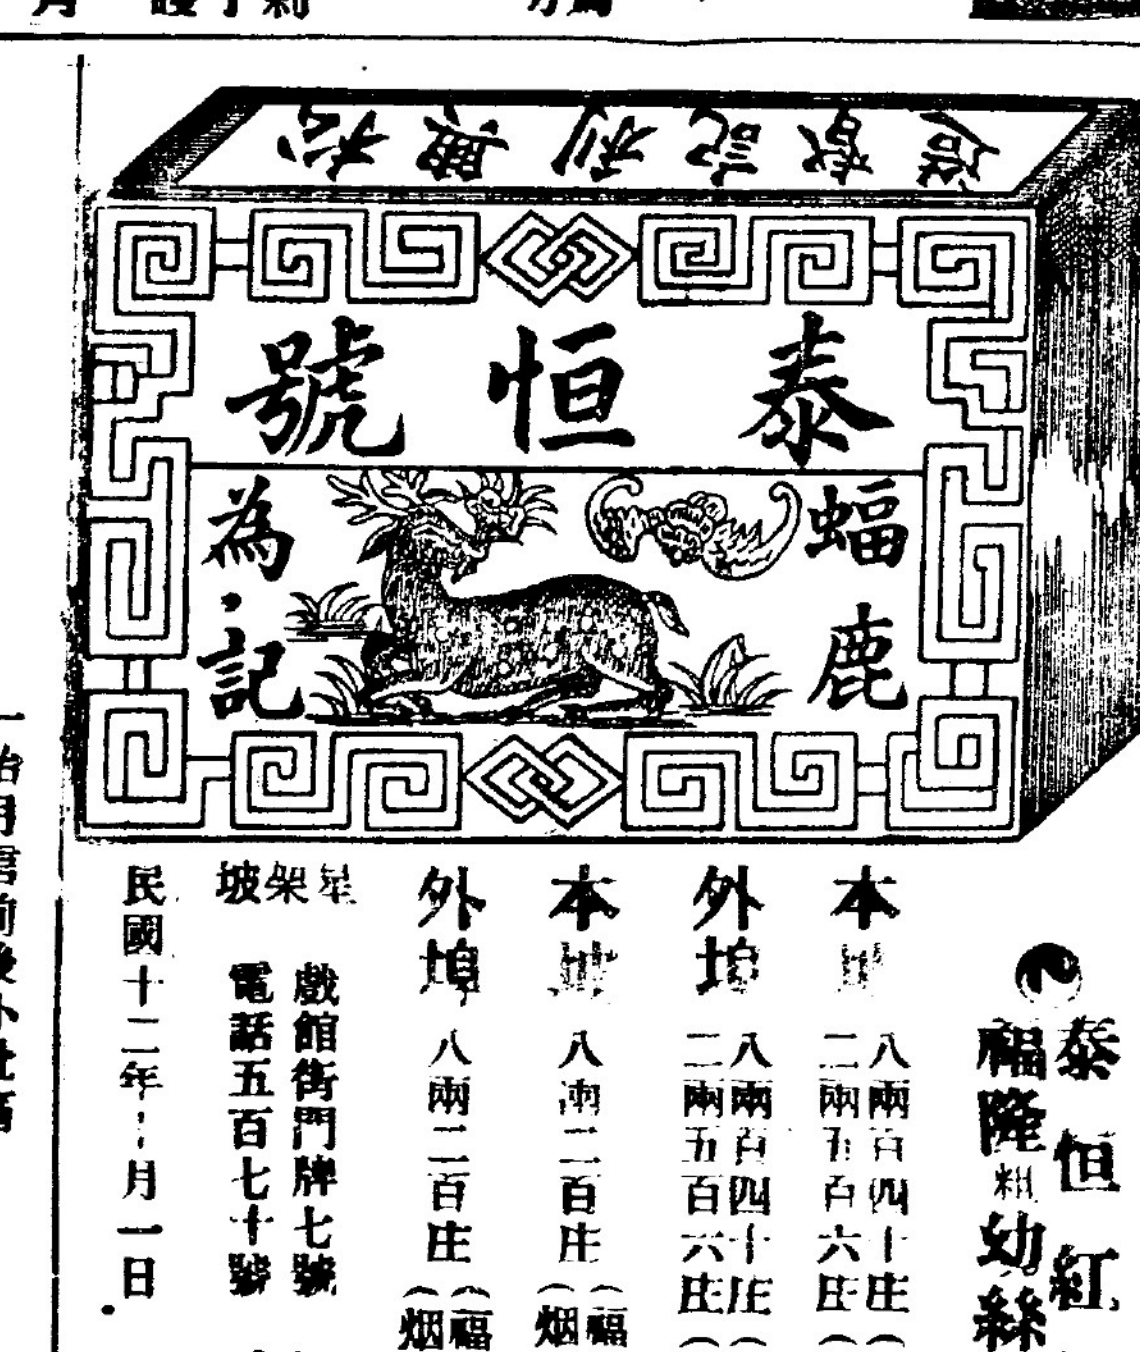 泰恒號
蝠鹿
為記
泰恒紅
福隆粗幼絲
本
八兩百四十庄
二兩五百六庄
外埠
八兩百四十庄
二兩五百六庄
本
八兩二百庄
福
烟
外埠
八兩二百庄
福
烟
星架坡
戲館街門牌七號
電話五百七十號
民國十二年 月一日